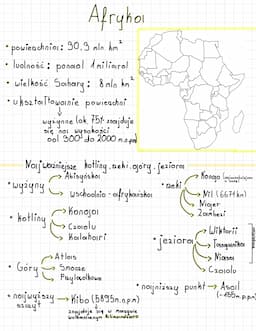 Afryka
• powierzchnia: 30,3 mln km²
• ludność: ponad 1 miliard
• wielkość Sahary: 8 mln km²
• ukształtowanie powierzchni
wyżynne (ok. 75% znajduje
się na wysokości
od 300 do 2000 m n.p.m)
Najważniejsze kotliny, rzeki, góry, jeziora
• wyżyny
Abisyńska
wschodnio-afrykańska
• kotliny
Konga
Czadu
Kalahari
• Góry
Atlas
Smocze
Przylądkowe
• najwyższy
szczyt
Kibo (5895m.n.p.m)
znajduje się w masywie
• rzeki
Kongo
Nil (6671km)
Niger
Zambezi
• jeziora
Wiktorii
Tanganika
Niasa
Czadu
• najniższy punkt
Assal
(-155m.p.p.m)